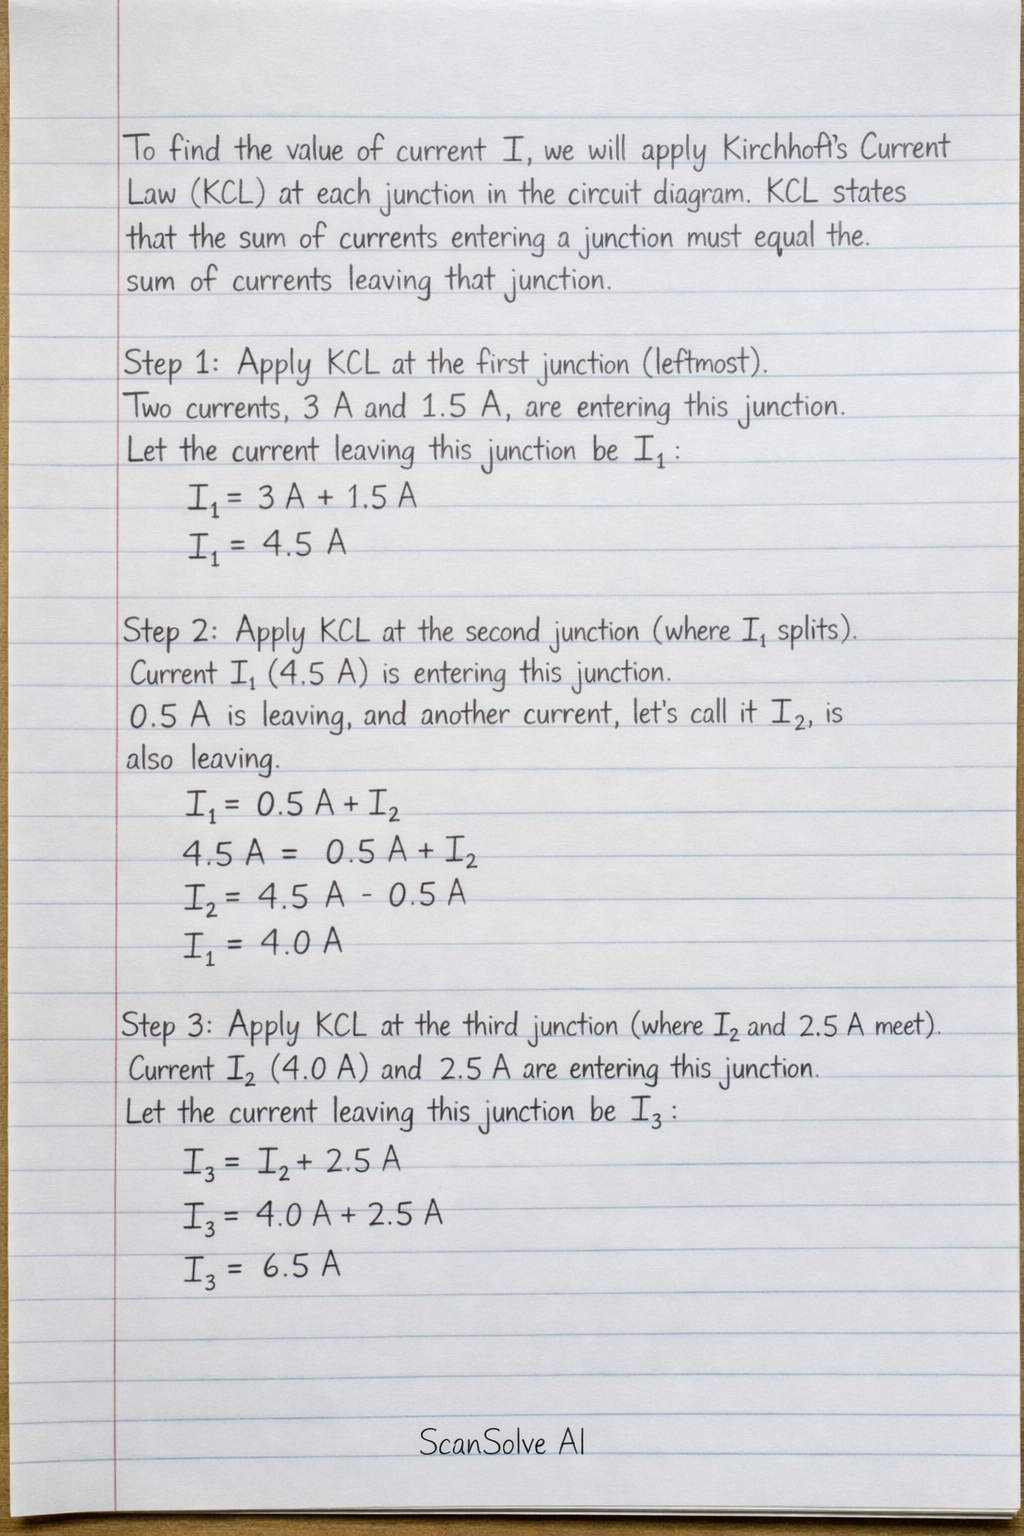 To find the value of current I, we will apply Kirchhoff's Current
Law (KCL) at each junction in the circuit diagram. KCL states
that the sum of currents entering a junction must equal the.
sum of currents leaving that junction.
Step 1: Apply KCL at the first junction (leftmost).
Two currents, 3 A and 1.5 A, are entering this junction.
Let the current leaving this junction be I₁:
I₁ = 3 A + 1.5 A
I₁ = 4.5 A
Step 2: Apply KCL at the second junction (where I₁ splits).
Current I₁ (4.5 A) is entering this junction.
0.5 A is leaving, and another current, let's call it I₂, is
also leaving.
I₁ = 0.5 A + I₂
4.5 A = 0.5 A + I₂
I₂ = 4.5 A - 0.5 A
I₁ = 4.0 A
Step 3: Apply KCL at the third junction (where I₂ and 2.5 A meet).
Current I₂ (4.0 A) and 2.5 A are entering this junction.
Let the current leaving this junction be I₃:
I₃ = I₂ + 2.5 A
I₃ = 4.0 A + 2.5 A
I₃ = 6.5 A
ScanSolve AI